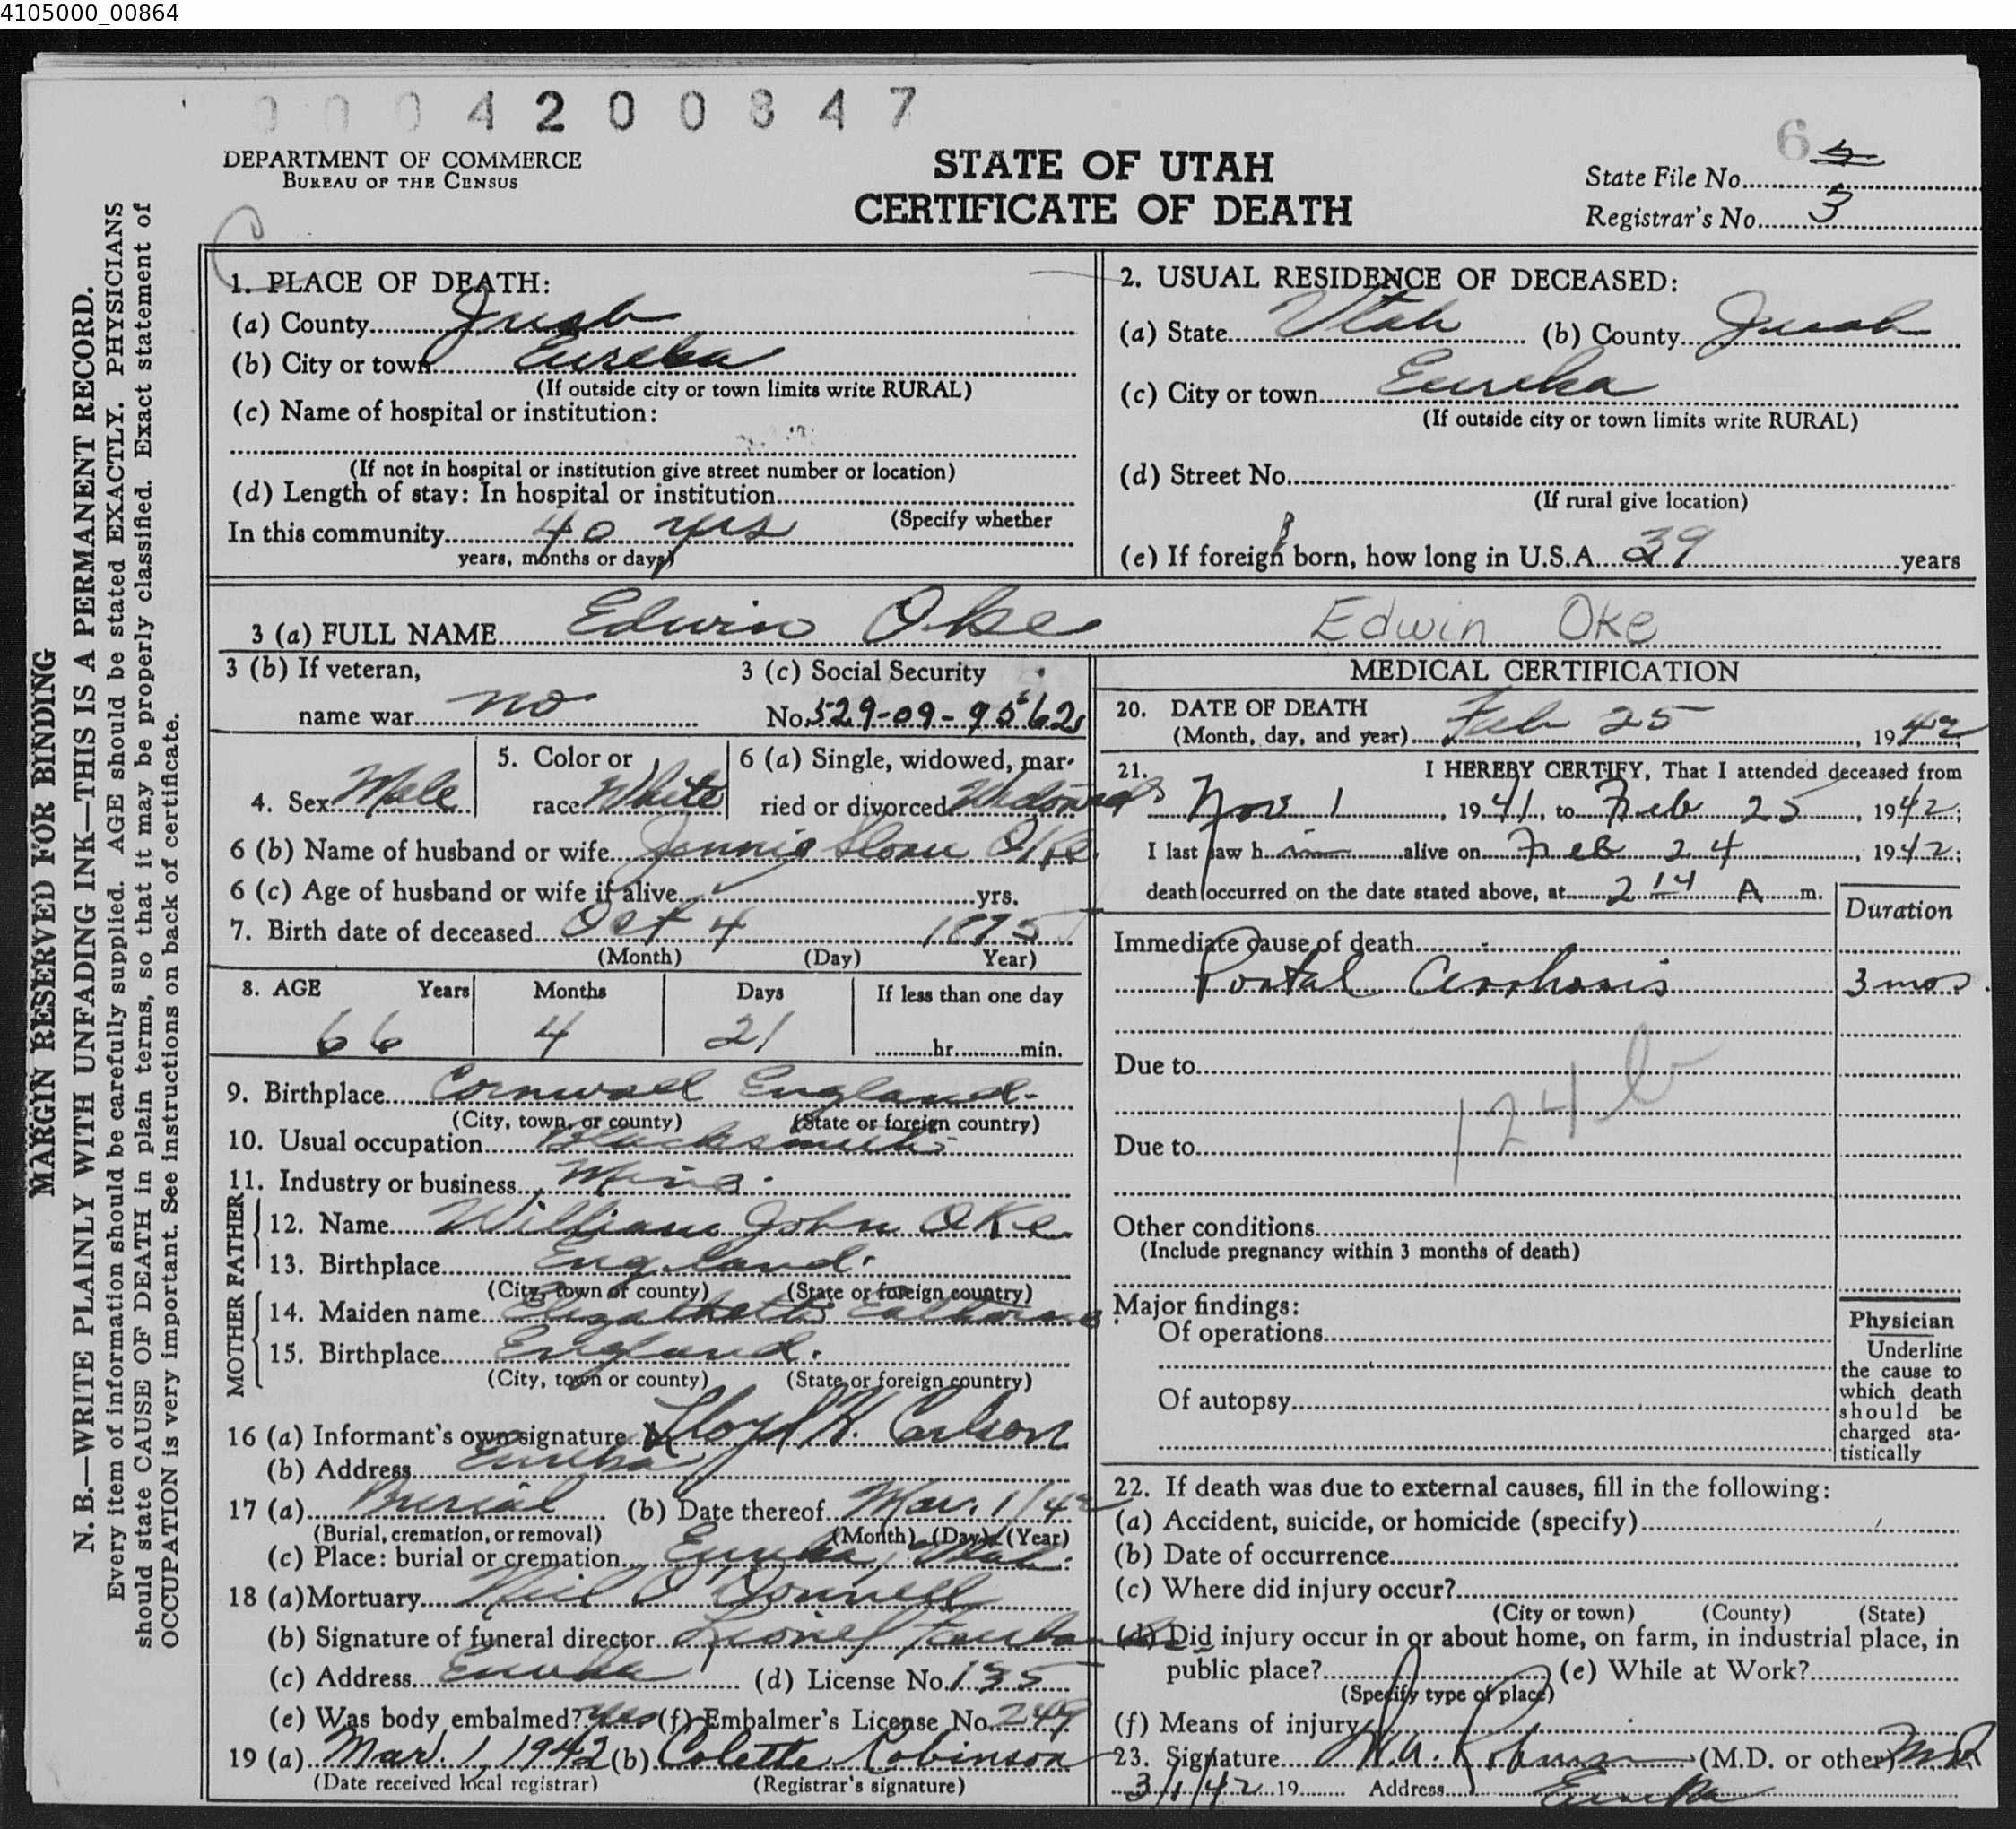 4105000_00864
0004200847
DEPARTMENT OF COMMERCE
BUREAU OF THE CENSUS
STATE OF UTAH
CERTIFICATE OF DEATH
6
State File No.
Registrar's No. 3
MARGIN RESERVED FOR BINDING
N. B.—WRITE PLAINLY WITH UNFADING INK—THIS IS A PERMANENT RECORD.
Every item of information should be carefully supplied. AGE should be stated EXACTLY. PHYSICIANS
should state CAUSE OF DEATH in plain terms, so that it may be properly classified. Exact statement of
OCCUPATION is very important. See instructions on back of certificate.
1. PLACE OF DEATH:
(a) County Juab
(b) City or town Eureka
(If outside city or town limits write RURAL)
(c) Name of hospital or institution:
(If not in hospital or institution give street number or location)
(d) Length of stay: In hospital or institution
(Specify whether
In this community 40 yrs
years, months or days)
2. USUAL RESIDENCE OF DECEASED:
(a) State Utah (b) County Juab
(c) City or town Eureka
(If outside city or town limits write RURAL)
(d) Street No.
(If rural give location)
(e) If foreign born, how long in U.S.A. 39 years
3 (a) FULL NAME Edwin Oke Edwin Oke
3 (b) If veteran,
name war no
3 (c) Social Security
No. 529-09-9562
4. Sex Male
5. Color or
race White
6 (a) Single, widowed, mar-
ried or divorced Widowed
6 (b) Name of husband or wife Jennie Sloan Oke
6 (c) Age of husband or wife if alive yrs.
7. Birth date of deceased Oct 4 1875
(Month) (Day) Year)
8. AGE Years Months Days If less than one day
66 4 21 hr. min.
9. Birthplace Cornwall England
(City, town, or county) (State or foreign country)
10. Usual occupation Blacksmith
11. Industry or business Mine
FATHER
12. Name William John Oke
13. Birthplace England
(City, town or county) (State or foreign country)
MOTHER
14. Maiden name Elizabeth
15. Birthplace England
(City, town or county) (State or foreign country)
16 (a) Informant's own signature Lloyd H. Carlson
(b) Address Eureka
17 (a) Burial (b) Date thereof Mar. 1/42
(Burial, cremation, or removal) (Month) (Day) (Year)
(c) Place: burial or cremation Eureka, Utah
18 (a) Mortuary Neil O'Donnell
(b) Signature of funeral director Lionel
(c) Address Eureka (d) License No. 135
(e) Was body embalmed? yes (f) Embalmer's License No. 249
19 (a) Mar. 1, 1942 (b) Colette Robinson
(Date received local registrar) (Registrar's signature)
MEDICAL CERTIFICATION
20. DATE OF DEATH
(Month, day, and year) Feb 25, 1942
21. I HEREBY CERTIFY, That I attended deceased from
Nov 1, 1941, to Feb 25, 1942;
I last saw him alive on Feb 24, 1942;
death occurred on the date stated above, at 2 14 A m.
Duration
Immediate cause of death
Portal Cirrhosis 3 mos.
Due to
124 b
Due to
Other conditions
(Include pregnancy within 3 months of death)
Major findings:
Of operations
Of autopsy
Physician
Underline
the cause to
which death
should be
charged sta-
tistically
22. If death was due to external causes, fill in the following:
(a) Accident, suicide, or homicide (specify)
(b) Date of occurrence
(c) Where did injury occur?
(City or town) (County) (State)
(d) Did injury occur in or about home, on farm, in industrial place, in
public place? (e) While at Work?
(Specify type of place)
(f) Means of injury
23. Signature (M.D. or other) MD
3/1/42 19 Address Eureka